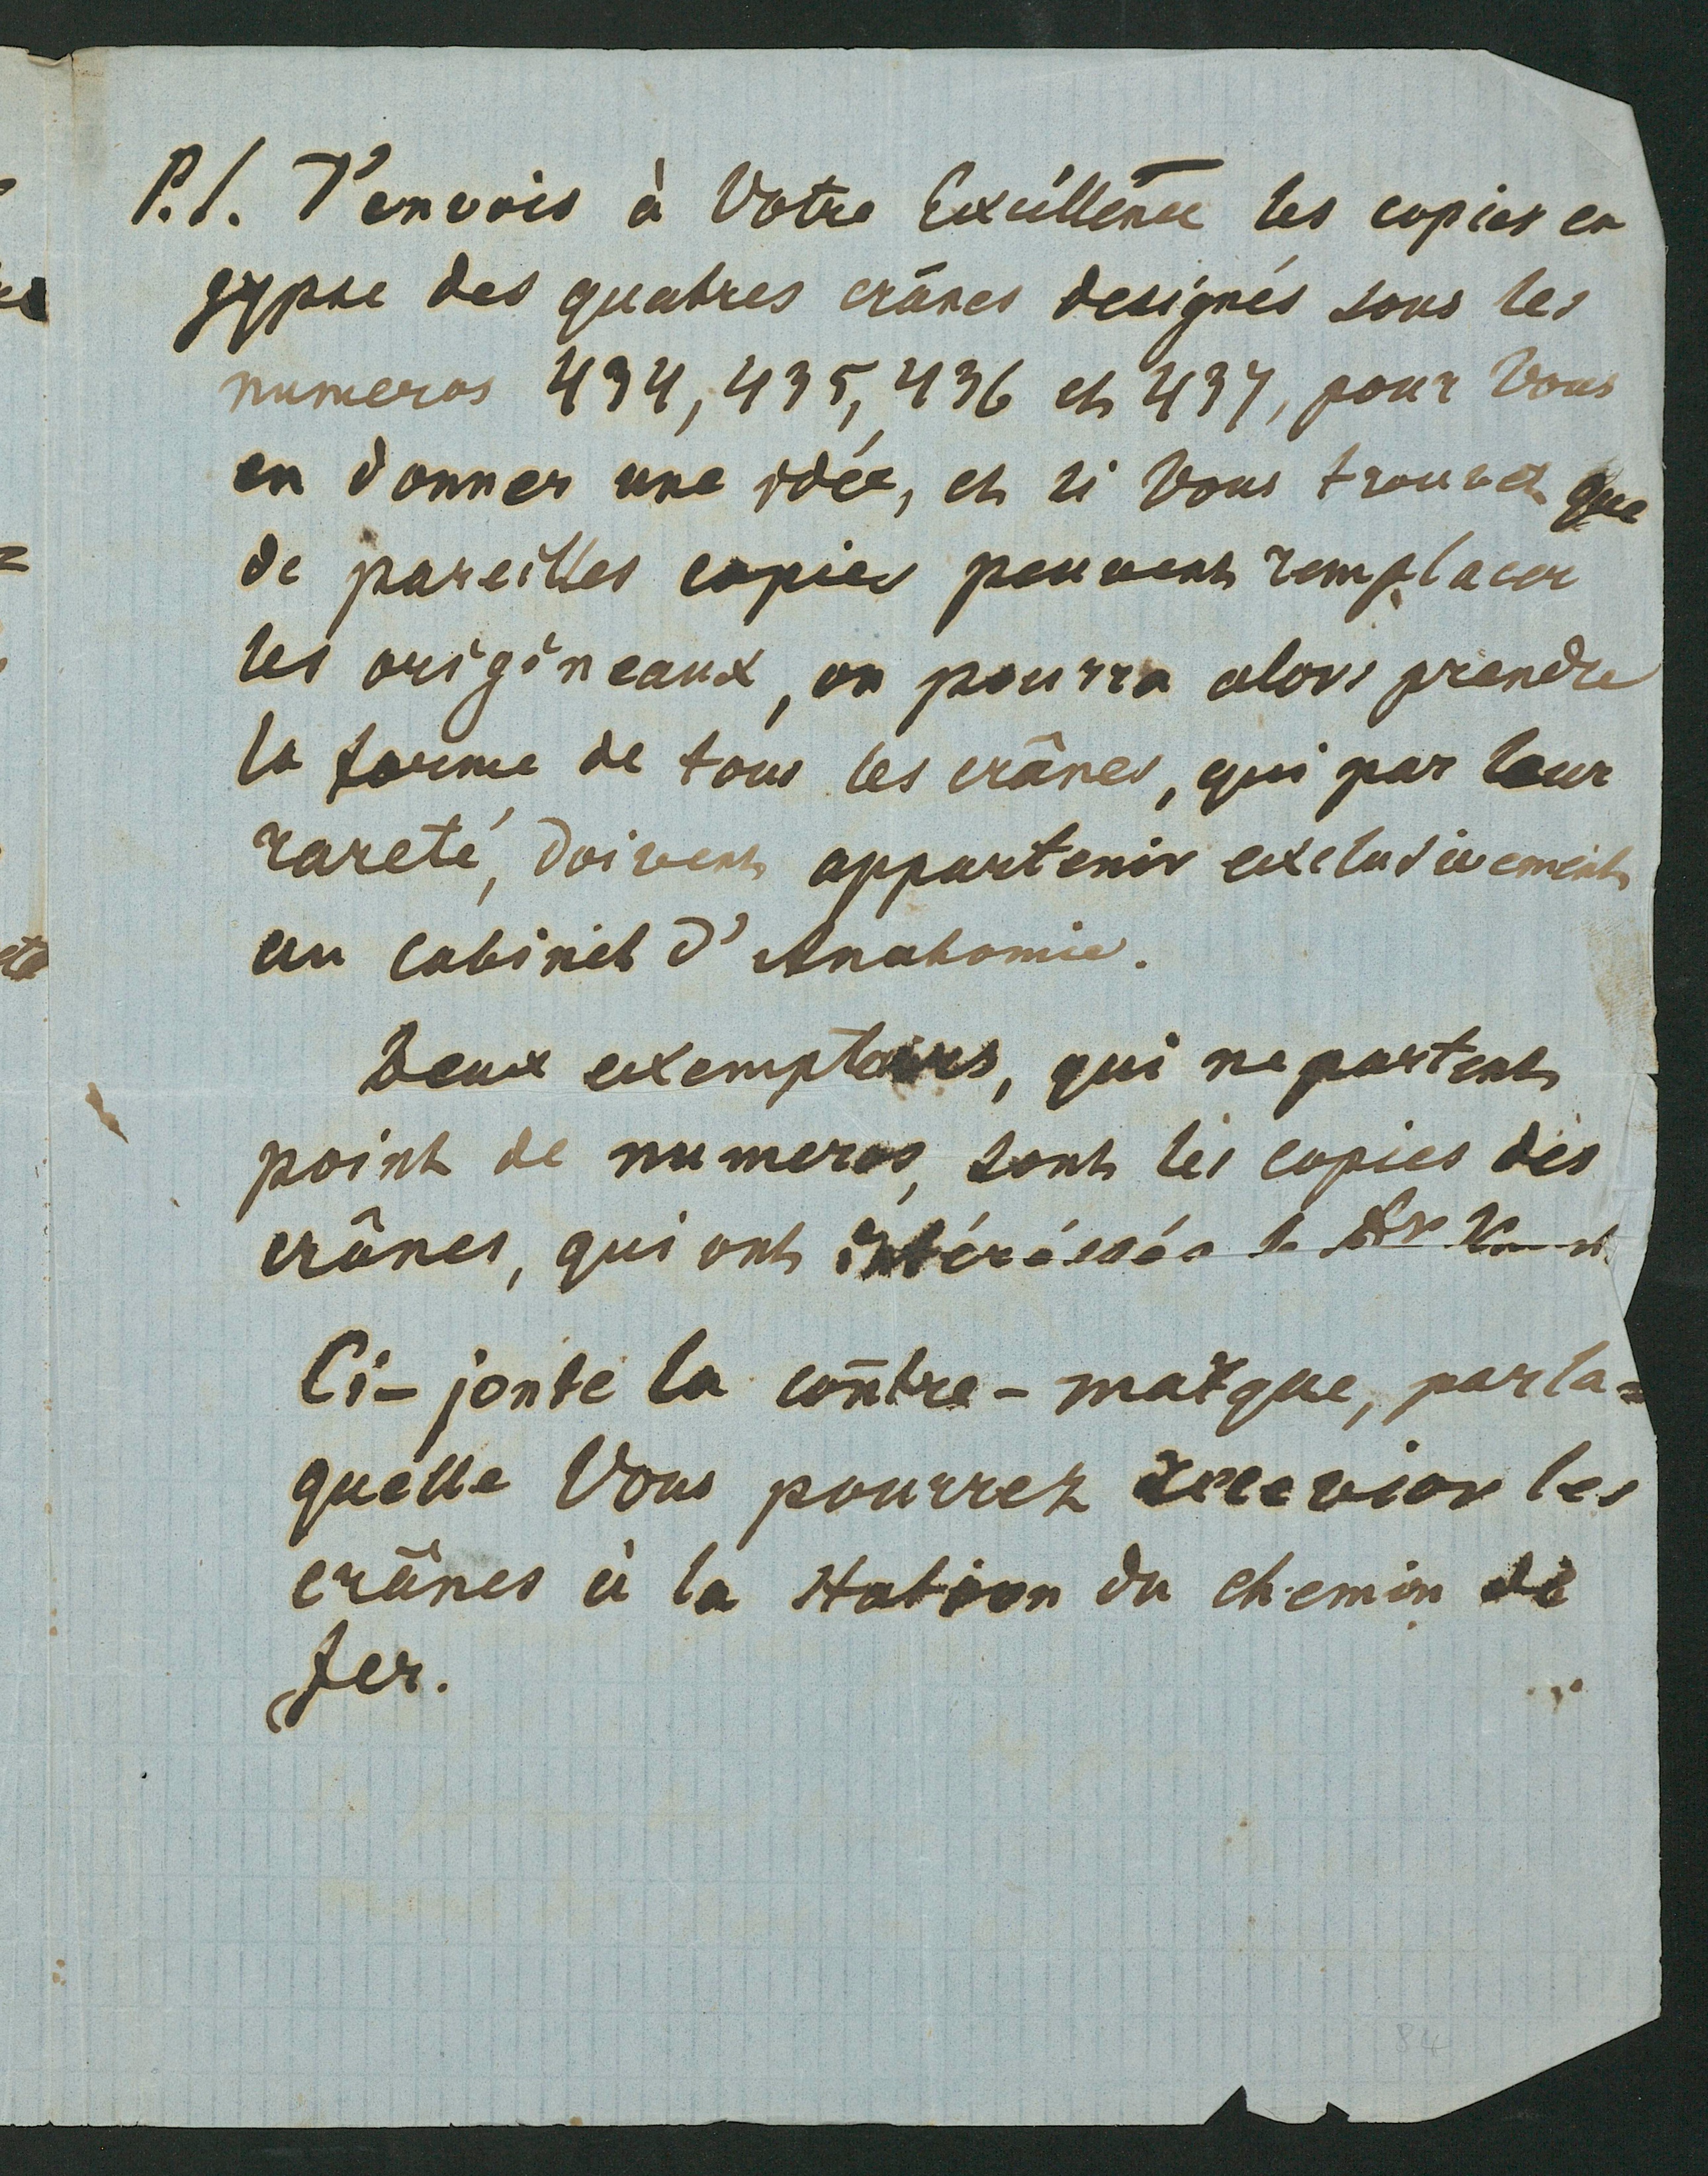 P.S. J'envois à Votre Excéllence les copies en
gypse des quatres crânes designés sous les
numeros 434, 435, 436 et 437, pour Vous
en donner une idée, et si Vous trouvez que
de pareilles copies peuvent remplacer
les origineaux, on pourra alors prendre
la forme de tous les crânes, qui par leur
rareté, doivent appartenir exclusivement
au cabinet d'Anatomie.
Deux exemplaires, qui ne portent
point de numeros, sont les copies des
crânes, qui ont intéréssés
Ci-jonte la contre-marque, par la=
quelle Vous pourrez recevior les
crânes à la station du chemin de
fer.
84